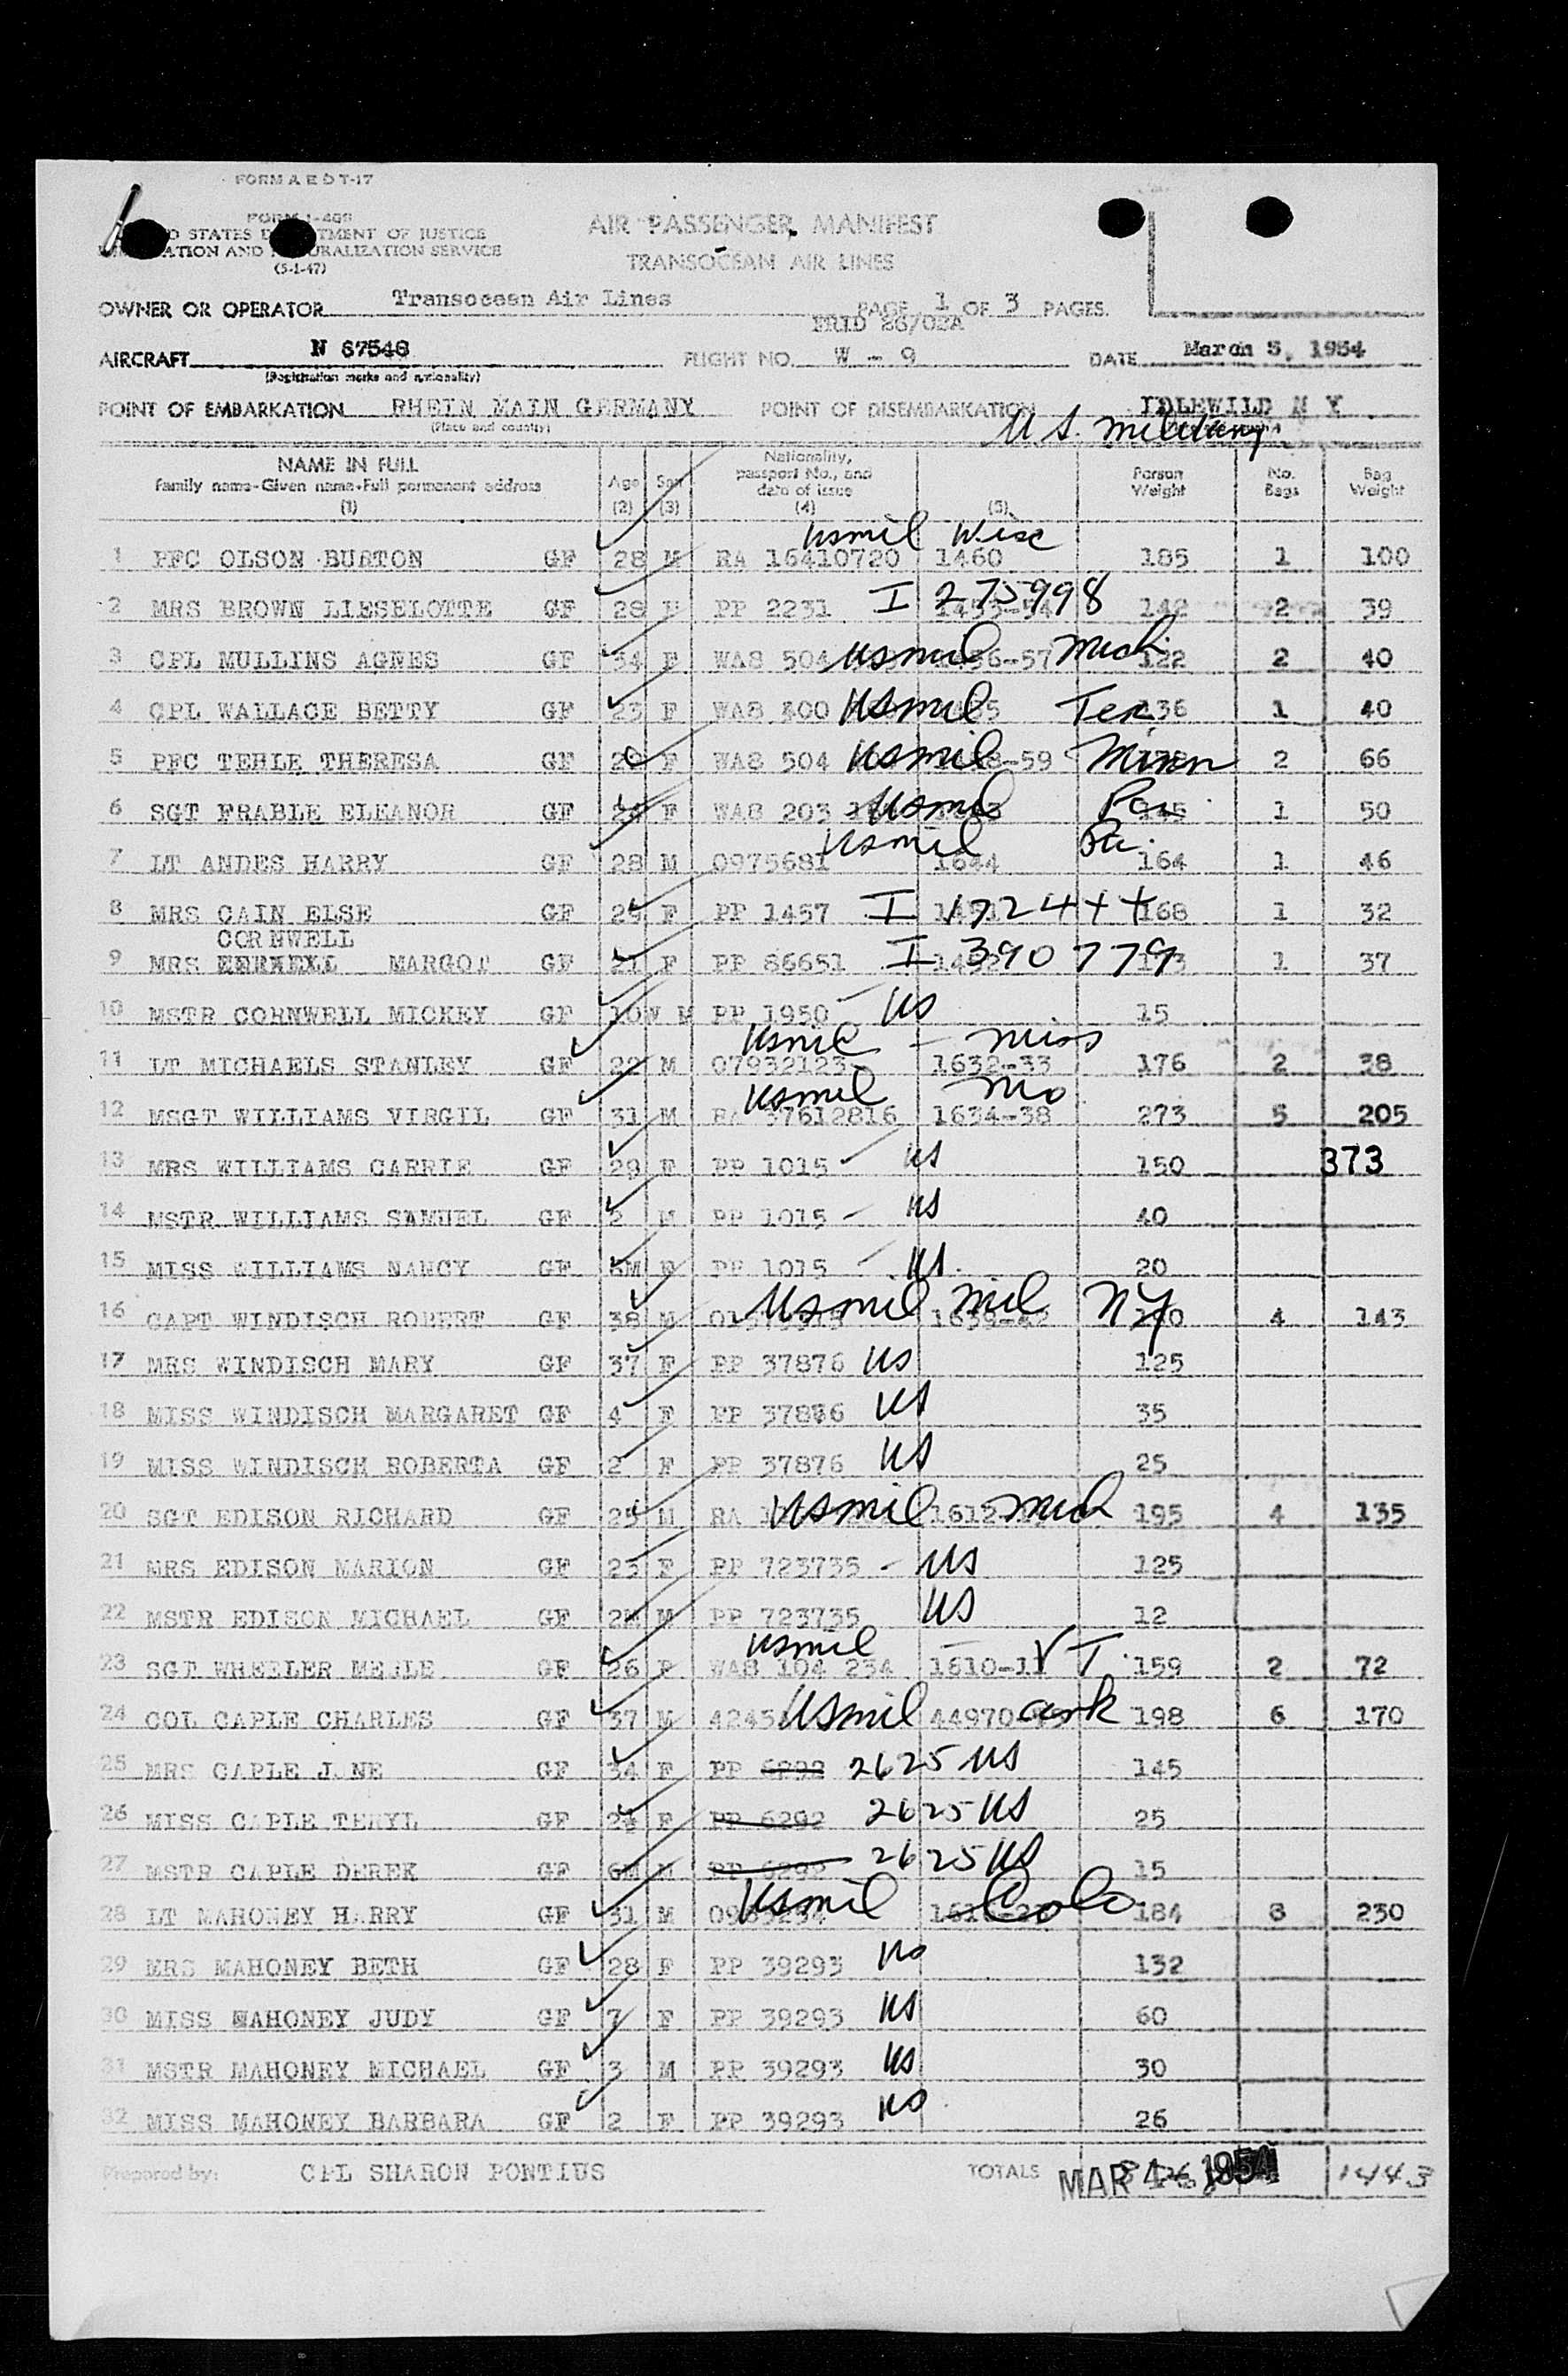 FORM A E D T-17
FORM I-466
STATES TMENT OF JUSTICE
ATION AND URALIZATION SERVICE
(5-1-47)
AIR PASSENGER MANIFEST
TRANSOCEAN AIR LINES
OWNER OR OPERATOR Transocean Air Lines PAGE 1 OF 3 PAGES
AIRCRAFT N FLIGHT NO. W - 9 DATE March 5, 1954
(Registration marks and nationality)
POINT OF EMBARKATION RHEIN MAIN GERMANY POINT OF DISEMBARKATION IDLEWILD N Y
(Place and country)
U S. Military
NAME IN FULL Age Sex Nationality, passport No., and date of issue Person Weight No. Bags Bag Weight
Family name-Given name-Full permanent address
(1) (2) (3) (4) (5)
usmil Wisc
1 PFC OLSON BURTON GF 28 M RA 16410720 1460 185 1 100
2 MRS BROWN LIESELOTTE GF 28 F PP 2231 I 275998 142 2 39
3 CPL MULLINS AGNES GF 34 F WAS 504 usmil 56-57 Mich 122 2 40
4 CPL WALLACE BETTY GF 23 F WAS 400 usmil Tex 136 1 40
5 PFC TEHLE THERESA GF F WAS 504 usmil -59 Minn 2 66
6 SGT FRABLE ELEANOR GF F WAS 203 usmil Pa 145 1 50
usmil Pa.
7 LT ANDES HARRY GF 28 M 0975681 1644 164 1 46
8 MRS CAIN ELSE GF 29 F PP 1457 I 172444 168 1 32
CORNWELL
9 MRS MARGOT GF 21 F PP 86651 I 390779 1 37
10 MSTR CORNWELL MICKEY GF 10W M PP 1950 US 15
usmil - Miss
11 LT MICHAELS STANLEY GF 22 M 07932123 1632-33 176 2 38
usmil Mo
12 MSGT WILLIAMS VIRGIL GF 31 M RA 37612816 1634-38 273 5 205
13 MRS WILLIAMS CARRIE GF 29 F PP 1015 US 150 373
14 MSTR WILLIAMS SAMUEL GF 2 M PP 1015 US 40
15 MISS WILLIAMS NANCY GF F PP 1015 US 20
16 CAPT WINDISCH ROBERT GF 38 M usmil mil 1639-42 NY 4 143
17 MRS WINDISCH MARY GF 37 F PP 37876 US 125
18 MISS WINDISCH MARGARET GF 4 F PP 37876 US 35
19 MISS WINDISCH ROBERTA GF 2 F PP 37876 US 25
20 SGT EDISON RICHARD GF 25 M RA usmil 1612 Mich 195 4 135
21 MRS EDISON MARION GF 23 F PP 723735 - US 125
22 MSTR EDISON MICHAEL GF 2M M PP 723735 US 12
usmil
23 SGT WHEELER MERLE GF 26 F WAS 104 234 1610-11 VT. 159 2 72
24 COL CAPLE CHARLES GF 37 M usmil 44970 ark 198 6 170
25 MRS CAPLE J NE GF 34 F PP 6292 2625 US 145
26 MISS CAPLE TERYL GF F PP 6292 2625 US 25
27 MSTR CAPLE DEREK GF 6M M PP 6292 2625 US 15
28 LT MAHONEY HARRY GF 31 M usmil Colo 184 8 230
29 MRS MAHONEY BETH GF 28 F PP 39293 US 132
30 MISS MAHONEY JUDY GF 7 F PP 39293 US 60
31 MSTR MAHONEY MICHAEL GF 3 M PP 39293 US 30
32 MISS MAHONEY BARBARA GF 2 F PP 39293 US 26
Prepared by: CPL SHARON PONTIUS TOTALS MAR 1954 1443